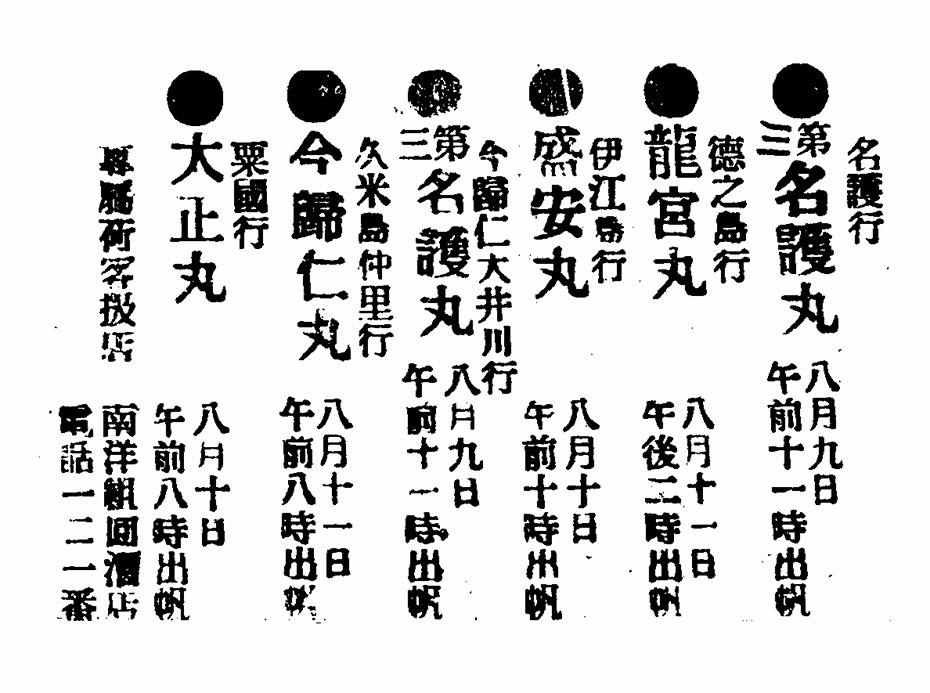 名護行
●第三名護丸
八月九日
午前十一時出帆
德之島行
●龍宮丸
八月十一日
午後二時出帆
伊江島行
●盛安丸
八月十日
午前十時出帆
今歸仁大井川行
●第三名護丸
八月九日
午前十一時出帆
久米島仲里行
●今歸仁丸
八月十一日
午前八時出帆
粟國行
●大正丸
八月十日
午前八時出帆
客扱店
南洋組回漕店
電話一二一番